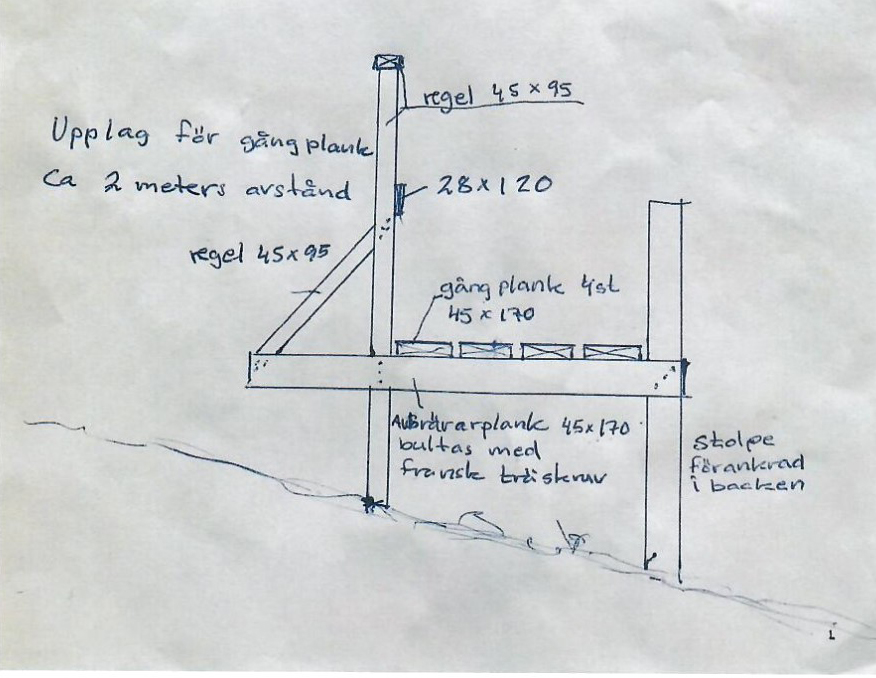 regel 45×95
Upplag för gångplank
Ca 2 meters avstånd
28×120
regel 45×95
gångplank 4st
45×170
plank 45×170
bultas med
fransk träskruv
stolpe
förankrad
i backen
1